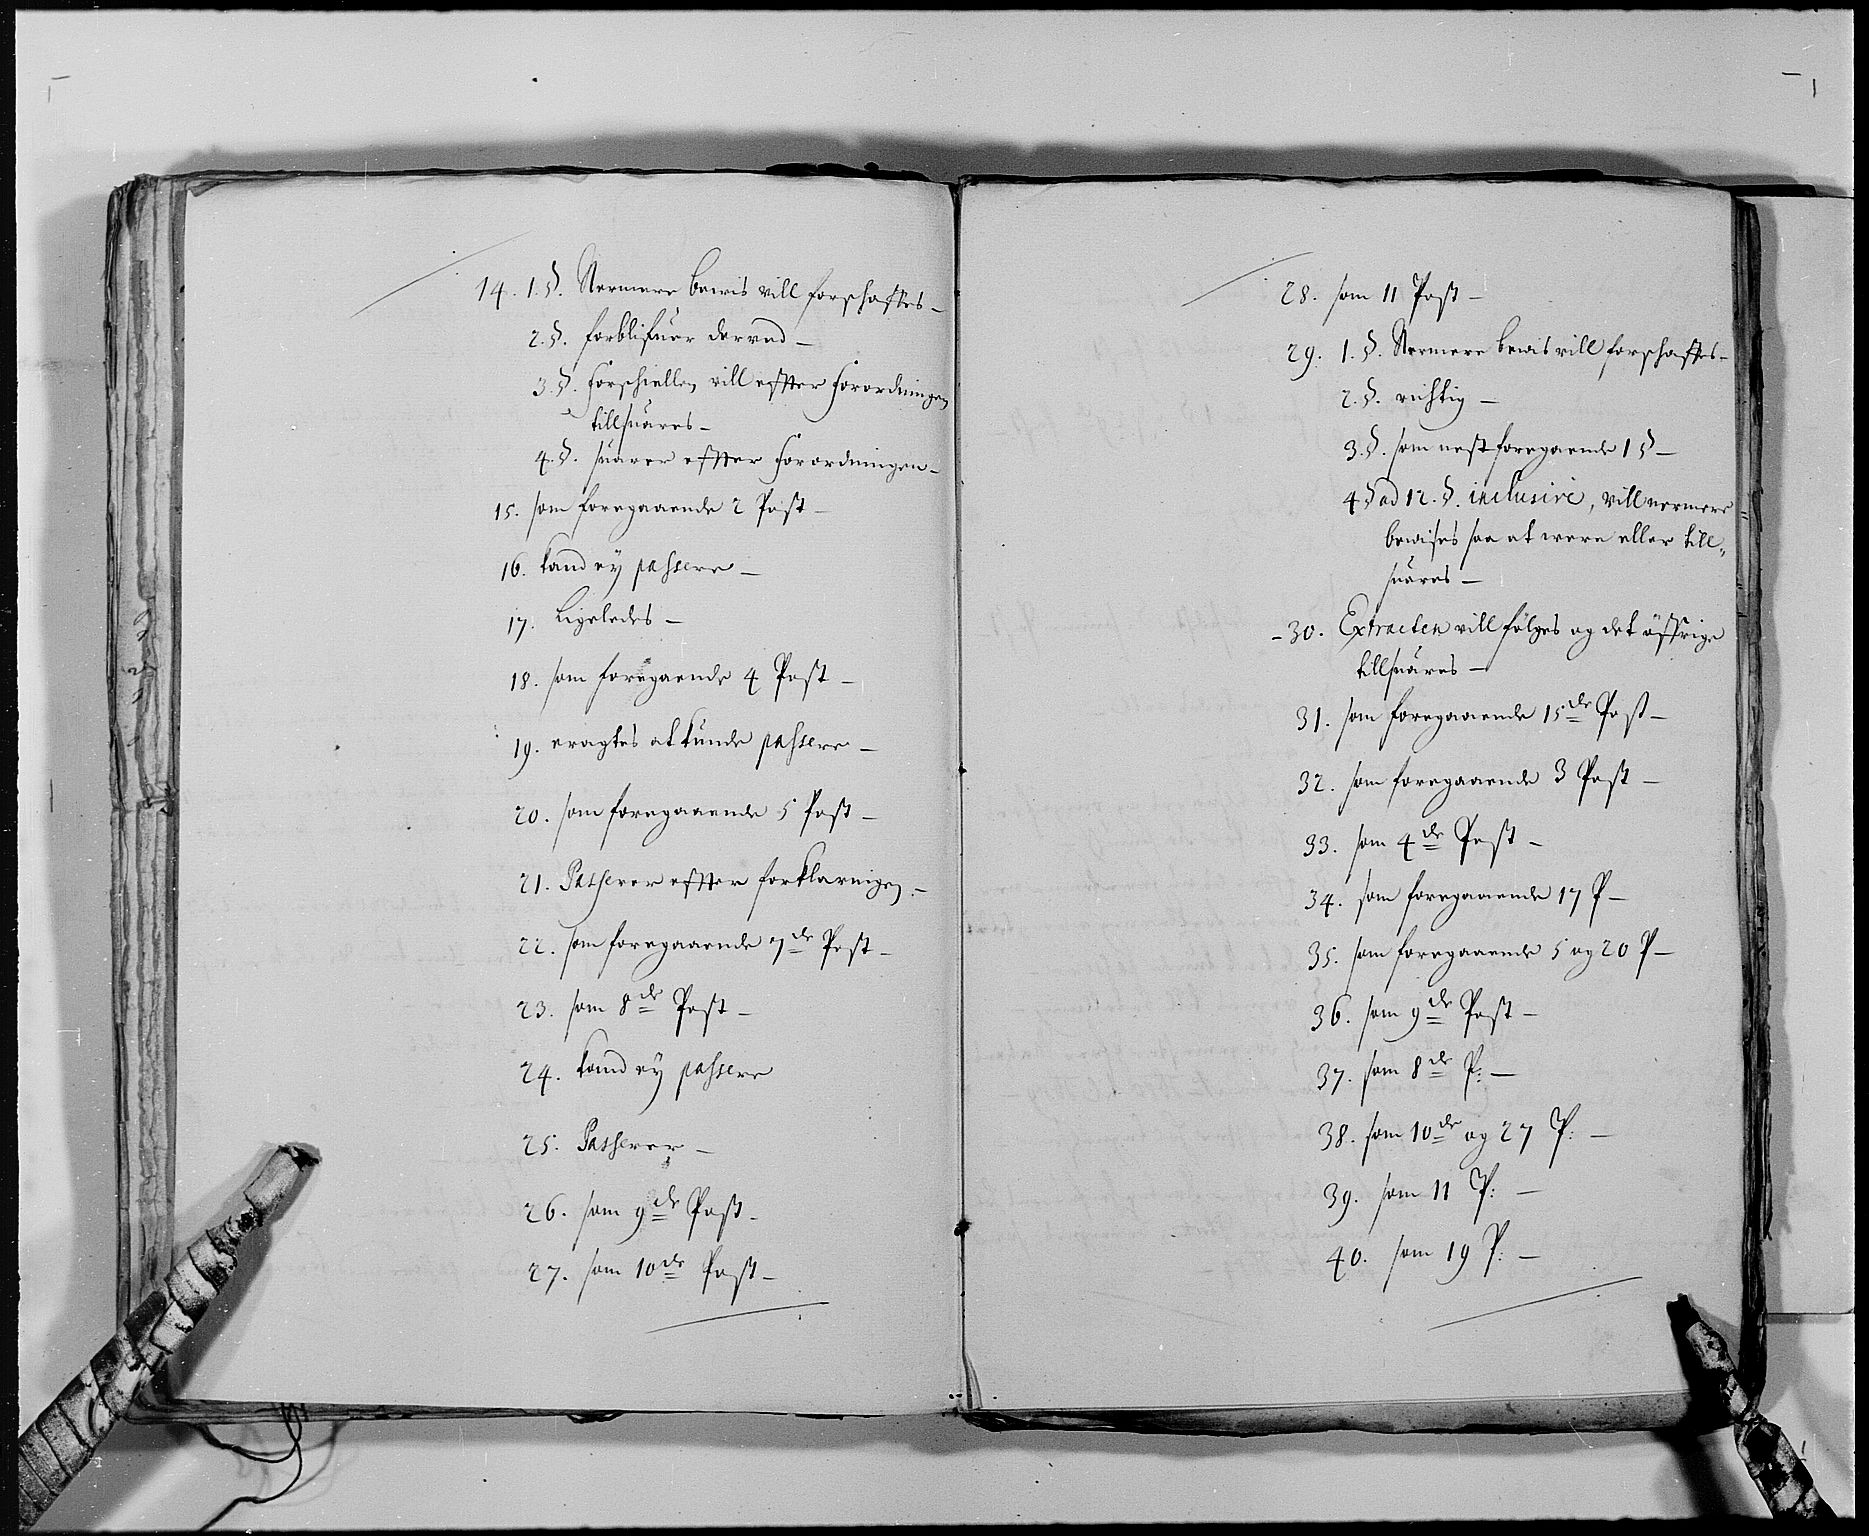 14. 1.§. Nermere bewis vill forschaffes –
2.§. forblifuer derved –
3.§. Forschiellen vill effter Forordningen
tillsuares –
4.§. suarer effter Forordningen –
15. som foregaaende 2 Post –
16. Kand ey passere –
17. Ligeledes –
18. som foregaende 4 Post –
19. eragtes at kunde passere –
20. som foregaaende 5 Post –
21. Passerer effter forklaringen –
22. som foregaaende 7de Post –
23. som 8de Post –
24. Kand ey passere
25. Passerer –
26. som 9de Post –
27. som 10de Post –
28. som 11 Post –
29. 1.§. Nermere bewis vill forschaffes –
2.§. richtig –
3.§. som nest foregaende 1 § –
4 § ad 12.§. inclusive, vill nermere
bewises saa at were eller till„
suares –
30. Extracten vill fölges og det öffrige
tillsuares –
31. som foregaaende 15de Post –
32. som foregaaende 3 Post –
33. som 4de Post –
34. som foregaaende 17 P –
35. som foregaaende 5 og 20 P –
36. som 9de Post –
37. som 8de P: –
38. som 10de og 27 P: –
39. som 11 P: –
40. som 19 P: –